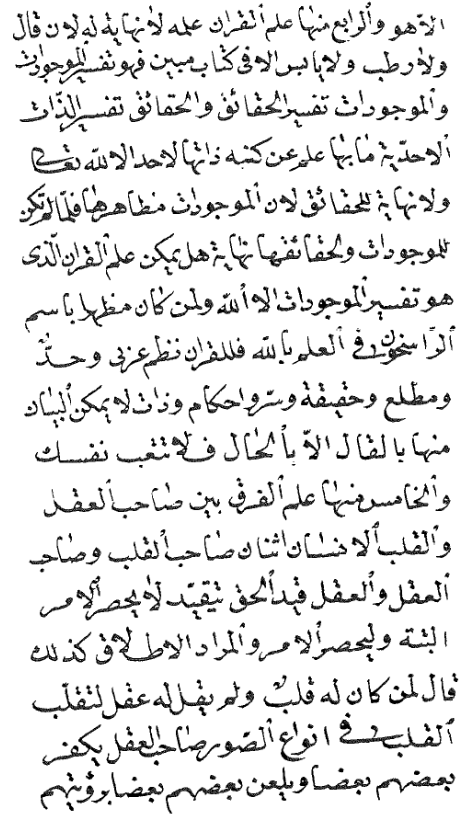 الا هو والرابع منها علم القران علمه لا نهاية له لان قال
ولا رطب ولا يابس الا فى كتاب مبين فهو تفسير الموجودات
والموجودات تفسير الحقائق والحقائق تفسير الذات
الاحدية ما بها علم عن كنه ذاتها لاحد الا لله تعالى
ولا نهاية للحقائق لان الموجودات مظاهرها فلما لم تكن
للموجودات ولحقائقها نهاية هل يمكن علم القران الذى
هو تفسير الموجودات الا لله ولمن كان مظهرا باسم
الراسخون فى العلم بالله فللقران نظم عربى وحد
ومطلع وحقيقة وسر واحكام وذات لا يمكن البيان
منها بالقال الا بالحال فلا تتعب نفسك
والخامس منها علم الفرق بين صاحب العقل
والقلب الانسان اثنان صاحب القلب وصاحب
العقل والعقل قيد الحق تقييد لا يحصر الامر
البتة وليحصر الامر والمراد الاطلاق كذلك
قال لمن كان له قلب ولم يقل له عقل لتقلب
القلب فى انواع الصور صاحب العقل يكفر
بعضهم بعضا ويلعن بعضهم بعضا برؤيتهم